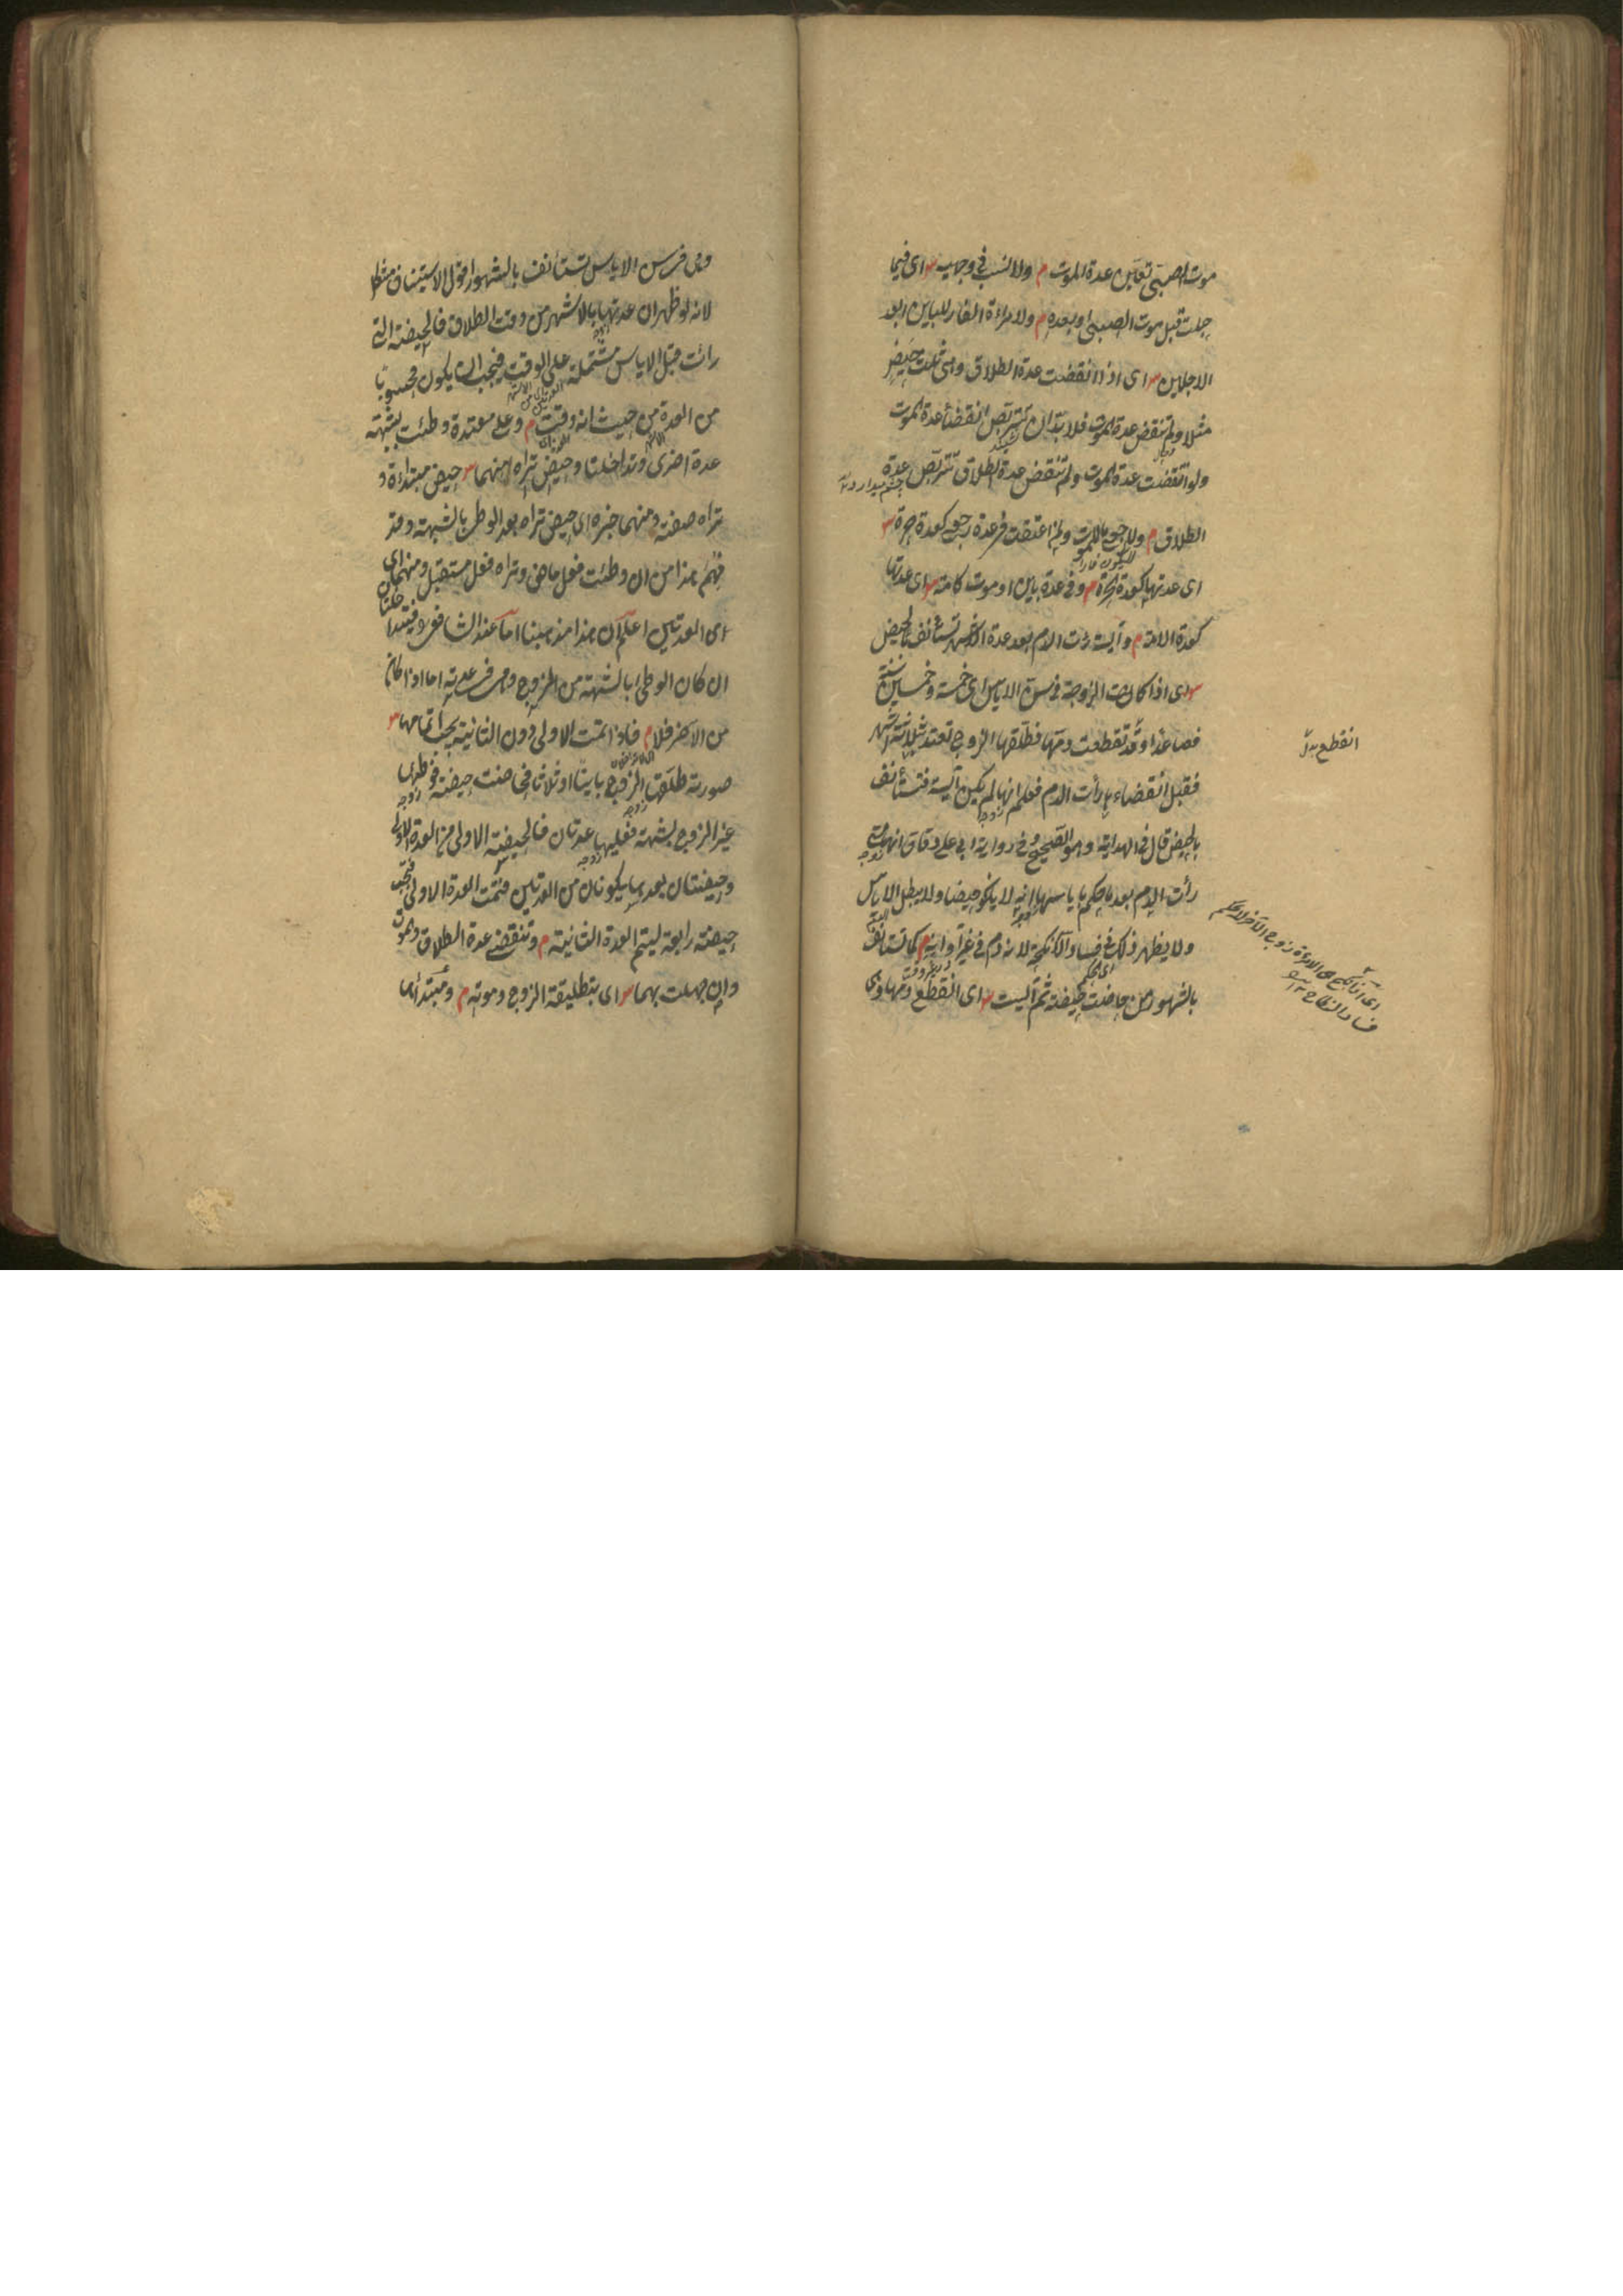 موت الصبى تعين عدة الموت م ولا نسب فى وجهيه س اى فيما
حبلت قبل موت الصبى او بعده م ولامراءة الفار للباين ابعد
الاجلين س اى اذا انقضت عدة الطلاق وهى ثلث حيض
مثلا ولم تنقض عدة الموت فلا بد ان تتربص انقضاء عدة الموت
ولو انقضت عدة الموت ولم تنقض عدة الطلاق تتربص عدة
الطلاق م وللرجعى ما للموت ولمن اعتقت فى عدة رجعى كعدة حرة س
اى عدتها كعدة الحرة م وفى عدة باين او موت كامة س اى عدتها
كعدة الامة م وآيسة رأت الدم بعد عدة الاشهر تستأنف بالحيض
س اى اذا كانت الزوجة فى سن الاياس اى خمسة وخمسين سنة
فصاعدا وقد انقطعت دمها فطلقها الزوج تعتد بثلاثة اشهر
فقبل انقضاءها رأت الدم فعلم انها لم تكن آيسة فتستأنف
بالحيض قال فى الهداية وهو الصحيح وفى رواية ابى على دقاق انها متى
رأت الدم بعد ما حكم باياسها انه لا يكون حيضا ولا يبطل الاياس
ولا يظهر ذلك فى فساد الانكحة لانه دم فى غير اوانه م كما تستأنف
بالشهور من حاضت حيضة ثم آيست س اى انقطع دمها وهى
انقطع
وهى فى سن الاياس تستأنف بالشهور اقول الاستيناف مشكل
لانه لو ظهر ان عدتها بالاشهر من وقت الطلاق فالحيضة التى
رأت قبل الاياس مشتملة على الوقت فيجب ان يكون محسوبا
من العدة من حيث انه وقت م وعلى معتدة وطئت بشبهة
عدة اخرى وتداخلتا وحيض تراه منهما س حيض مبتداءة و
تراه صفته ومنهما خبره اى حيض تراه بعد الوطى بالشبهة وقد
فهم هذا من ان وطئت فعل ماض وتراه فعل مستقبل ومنهما اى
اى العدتين اعلم ان هذا مذهبنا اما عند الشافعى فيتداخلتان
ان كان الوطى بالشبهة من الزوج وهى فى عدته اما اذا كان
من الآخر فلا م فاذا تمت الاولى دون الثانية يجب اتمامها س
صورته طلقها الزوج باينا او ثلاثا فحاضت حيضة فوطئها
غير الزوج بشبهة فعليها عدتان فالحيضة الاولى من العدة الاولى
وحيضتان بعدها يكونان من العدتين فتمت العدة الاولى فتجب
حيضة رابعة ليتم العدة الثانية م وتنقضى عدة الطلاق والموت
وان جهلت بهما س اى بتطليقة الزوج وموته م ومبتدأها